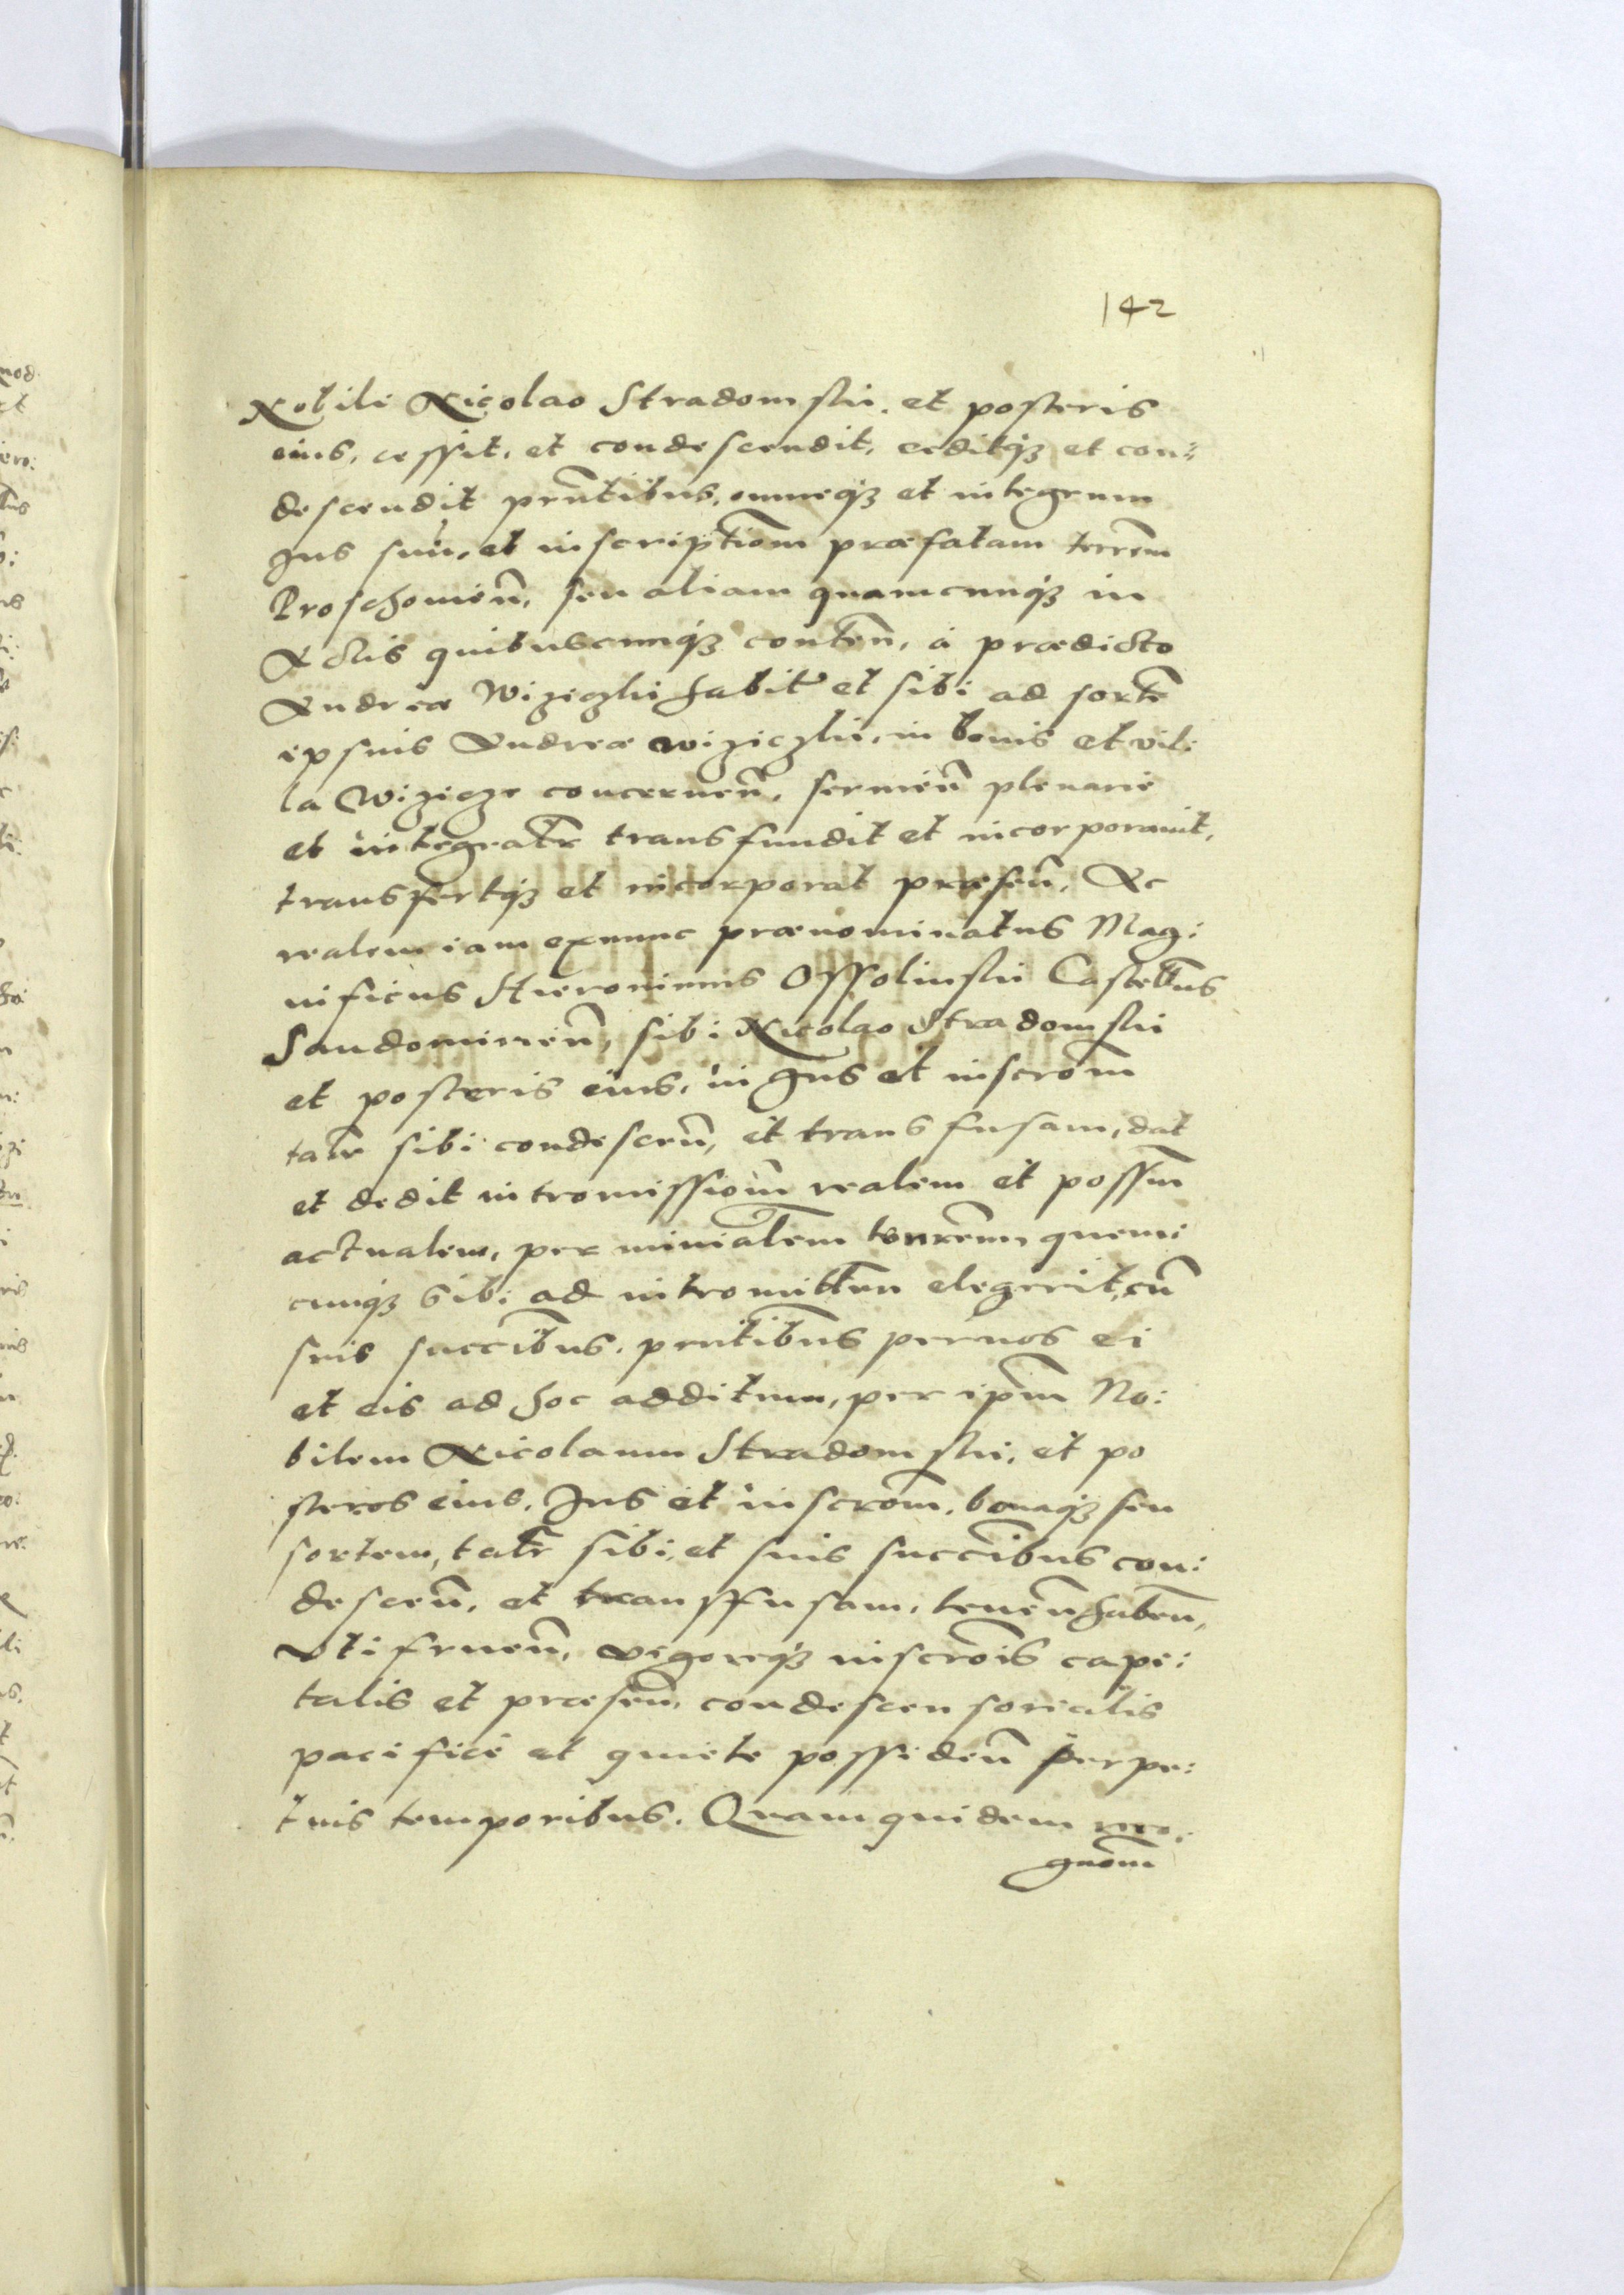 142
Nobili Nicolao Stradomski. et posteris
eius, cessit, et condescendit, ceditq3 et con:
descendit prñtibus, omneq3 et integrum
Jus suũ, et inscriptiõm præfatam terrẽm
Proschouieñ, seu aliam quamcunq3 in
Actis quibuscunq3 conteñ, à prædicto
Andrea Wiziczki habit et sibi ad sortẽ
ipsius Andreæ wiziczki, in bonis et vil:
la Wizicze concerneñ, servieñ plenarie
et integralr transfundit et incorporavit,
transfertq3 et incorporat præseñ, Ac
realem iam exnunc prænominatus Mag:
nificus Hieronimus Ossolinski Castellñus
Sandomirieñ, sibi Nicolao Stradomski
et posteris eius, in Jus et inscrõm
talr sibi condesceñ, et transfusam, dat
et dedit intromissiõm realem et possm̃
actualem, per minialem terrẽm quem:
cunq3 sibi ad intromitteñ elegerit, cũ
suis succĩbus. prñtibus per nos ei
et eis ad hoc additum, per ipm̃ No:
bilem Nicolaum Stradomski, et po
steros eius, Jus et inscrõm, bonaq3 seu
sortem, talr sibi, et suis succĩbus con:
desceñ, et transffusam, teneñ habeñ,
vti frueñ, vigoreq3 inscrõis capi:
talis et præseñ, condescensorialis
pacificè et quiete possideñ perpe:
tuis temporibus. Quam quidem reco:
gnõm